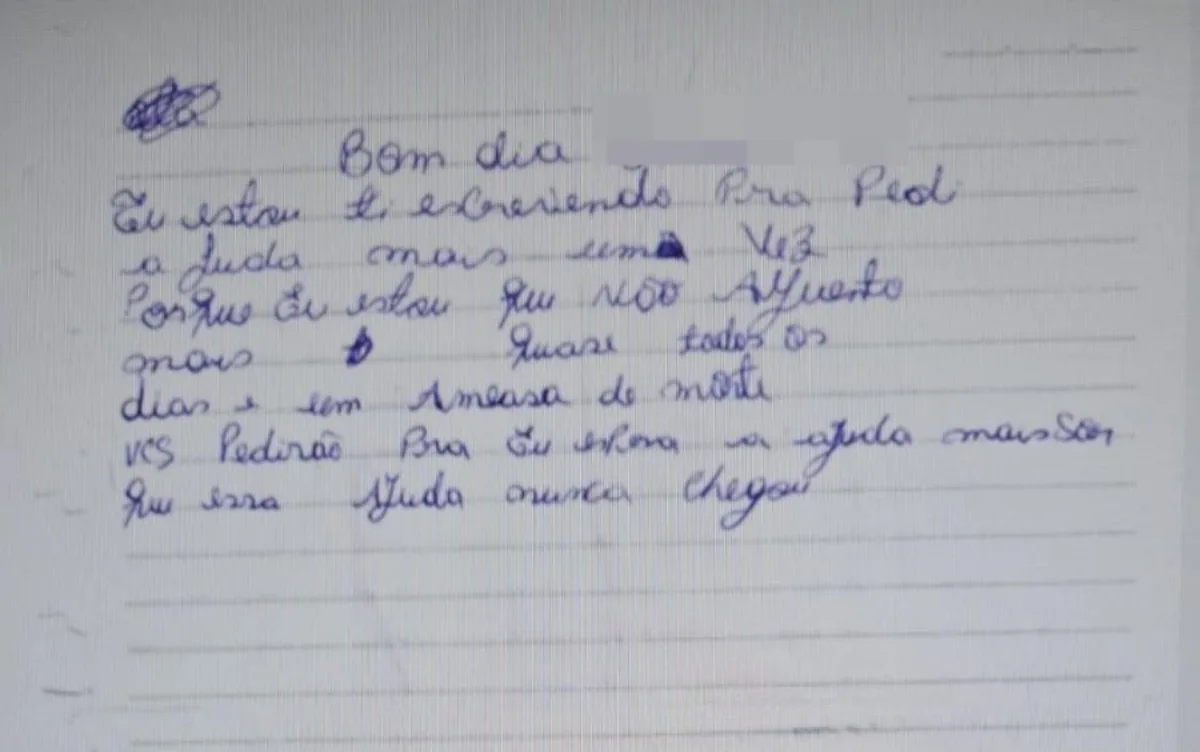 Bom dia
Eu estou ti escrevendo Pra Pedi
a Juda mais uma Vez
Porque Eu estou que NÃO AGuento
mais quase todos os
dias e um Ameasa de morte
VCS Pedirão Pra Eu espera a ajuda mais só
que essa Ajuda nunca chegou